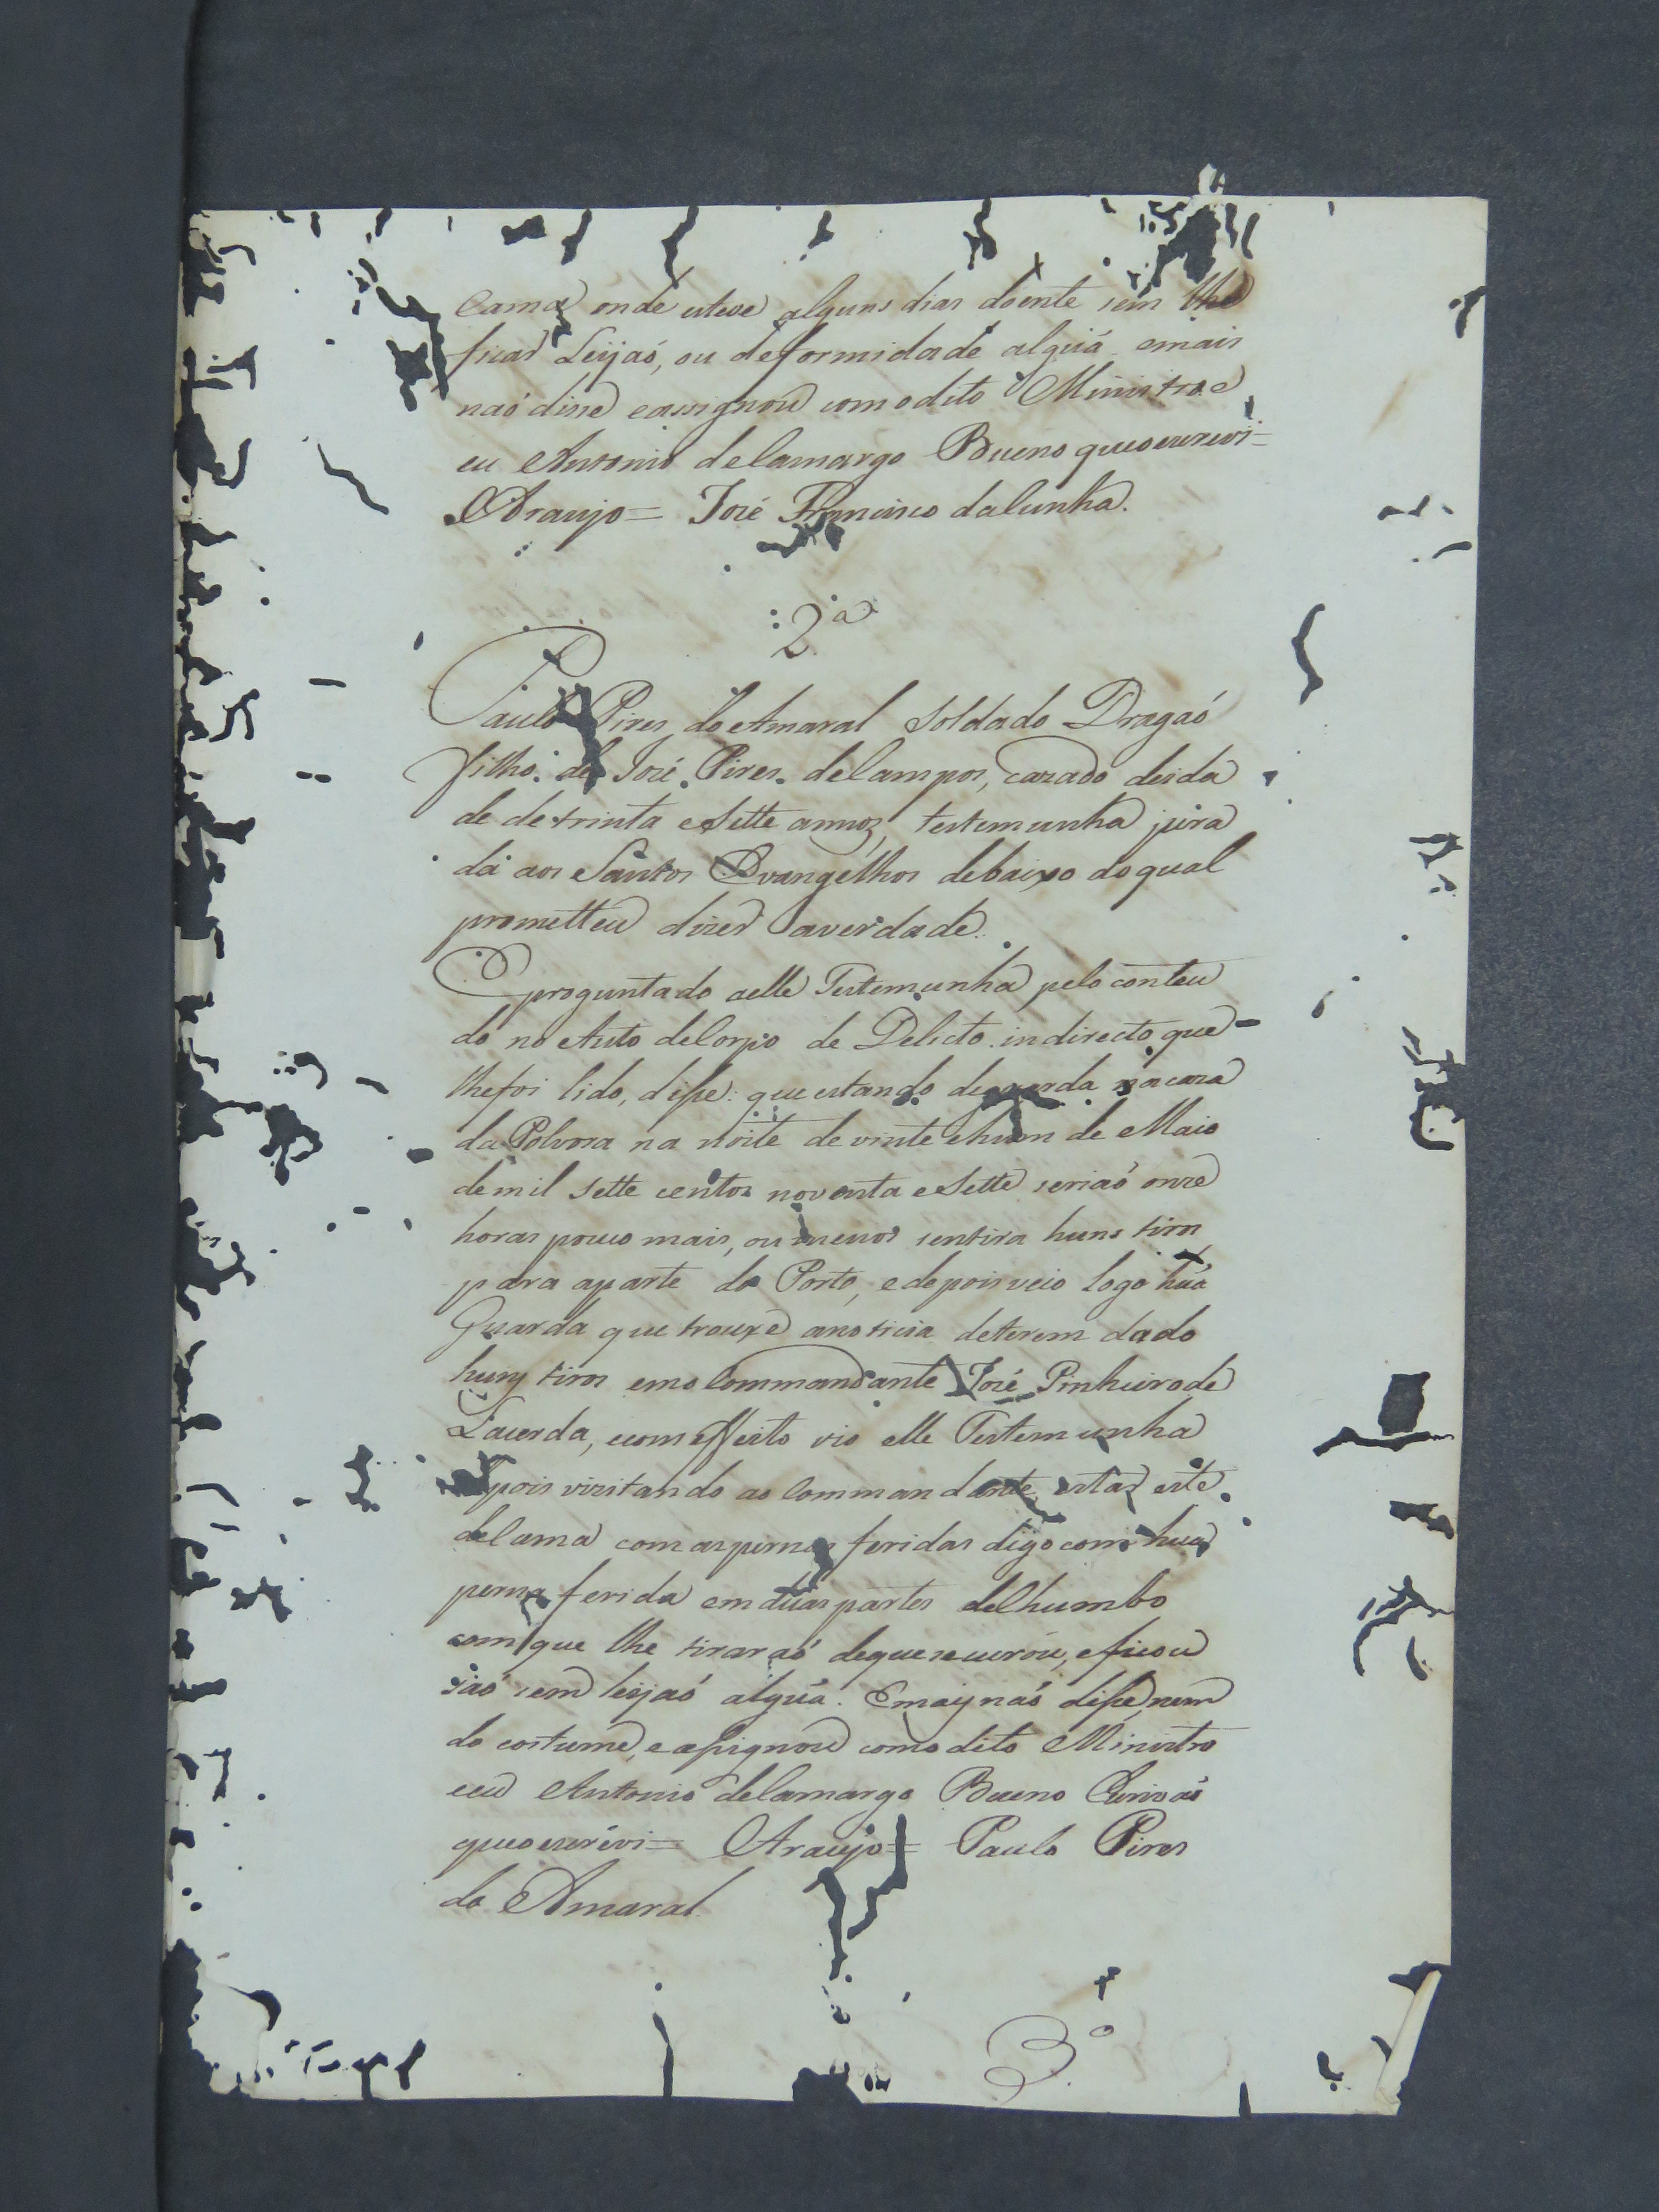 Cama onde esteve alguns dias doente sem lhe
ficar Leijaó, ou deformidade algũa emais
naó disse eassignou comodito Ministro e
eu Antonio deCamargo Bueno queoescrevi=
Araujo= José Francisco daCunha.
2ª
Paulo Pires do Amaral Soldado Dragaó
filho de José Pires deCampos, cazado deida
de detrinta eSette annos, testemunha jura
da aos Santos Evangelhos debaixo doqual
prometteu dizer averdade.
Eproguntado aelle Testemunha pelo conteu
do no Auto deCorpo de Delicto indirecto que
lhefoi lido, disse: que estando deguarda nacaza
da Polvora na noite de vinte ehum de Maio
demil Sette centos noventa eSette seriaó onze
horas pouco mais, oumenos sentira huns tiros
para aparte do Porto, edepois veio logo hũa
Guarda que trouxe anoticia deterem dado
huns tiros emo Commandante José Pinheirode
Lacerda, ecomeffeito vio elle Testemunha
depois vizitando ao Commandante estar este
deCama com aspernas feridas digo com hua
perna ferida em duas partes deChumbo
com que lhe tiraraó dequesecurou, eficou
saó sem leijaó algũa. Emais naó disse, nem
do costume, eassignou comodito Ministro
eeu Antonio deCamargo Bueno Escrivaó
queoescrevi= Araujo= Paulo Pires
do Amaral.
3ª